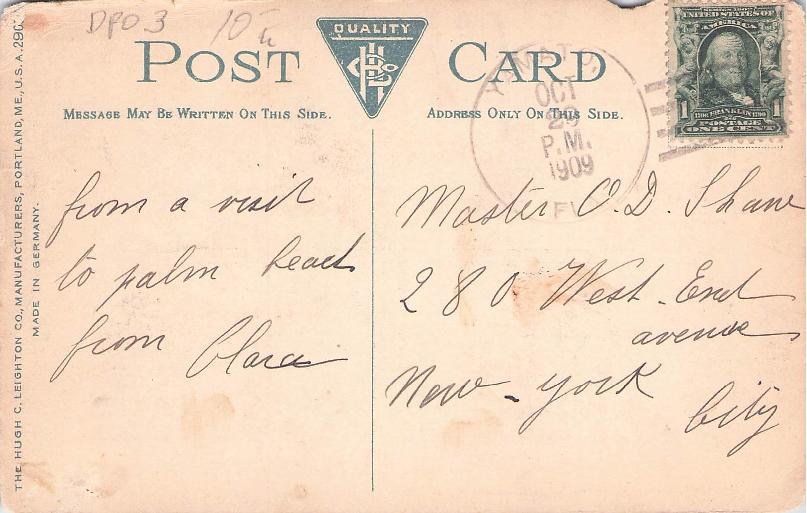 DPO 3 10
QUALITY
POST CARD
MESSAGE MAY BE WRITTEN ON THIS SIDE.
ADDRESS ONLY ON THIS SIDE.
THE HUGH C. LEIGHTON CO., MANUFACTURERS, PORTLAND, ME., U.S.A.
MADE IN GERMANY.
YAMATO,
OCT
P.M.
1909
FLA
SERIES 1902
UNITED STATES OF
AMERICA
1 1
FRANKLIN
POSTAGE
ONE CENT
from a visit
to palm beach
from Clara
Master O.D. Shane
280 West End
avenue
New-york
City